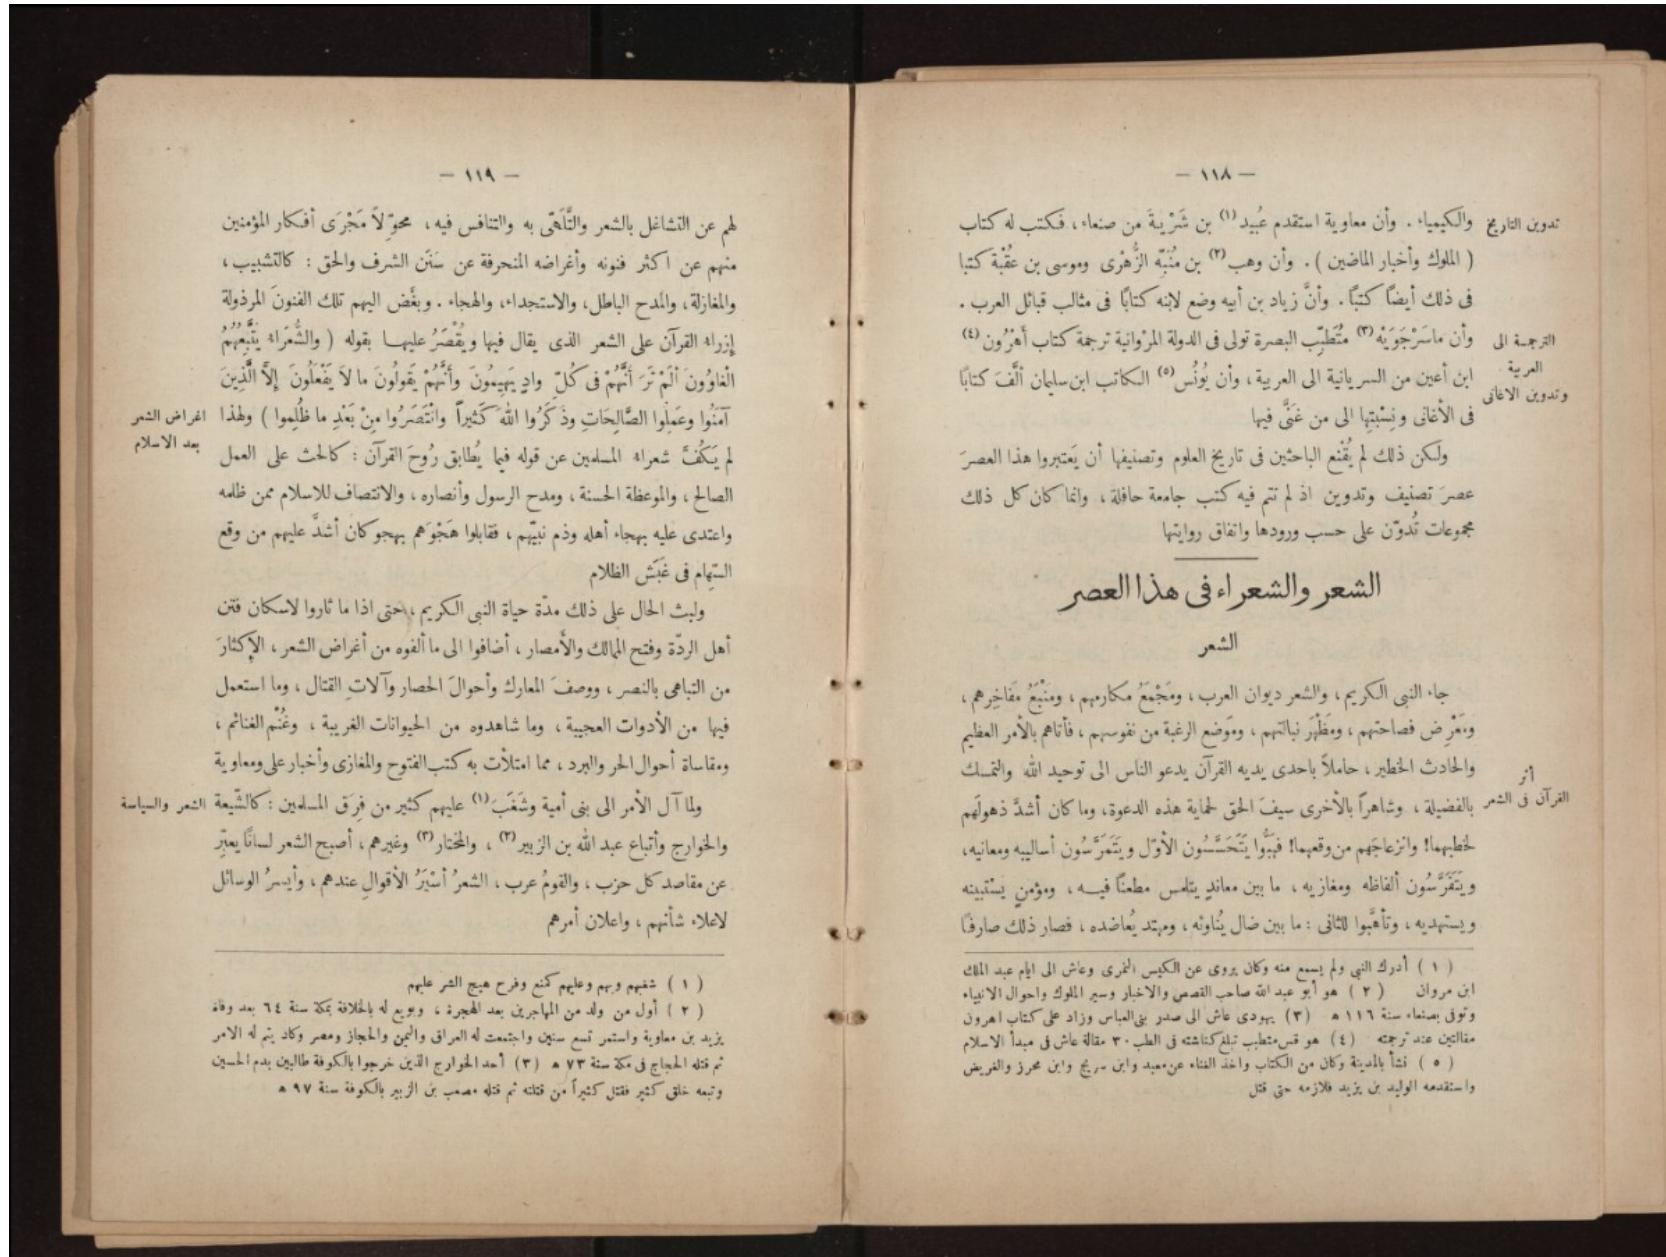 — ١١٨ —
تدوين التاريخ
والكيمياء . وأن معاوية استقدم عُبيد (١) بن شَرْيةَ من صنعاء ، فكتب له كتاب
( الملوك وأخبار الماضين ) . وأن وهب (٢) بن مُنَبِّه الزُّهْرى وموسى بن عقْبَة كتبا
فى ذلك أيضاً كتباً . وأنَّ زياد بن أبيه وضع لابنه كتابًا فى مثالب قبائل العرب .
الترجمة الى
العربية
وتدوين الاغانى
وأن ماسَرْجَوَيْه (٣) مُتَطبِّب البصرة تولى فى الدولة المرْوانية ترجمة كتاب أهْرُون (٤)
ابن أعين من السريانية الى العربية ، وأن يُونُس (٥) الكاتب ابن سليمان ألَّفَ كتابًا
فى الأغانى ونِسْبتِها الى من غَنَّى فيها
ولكن ذلك لم يُقْنع الباحثين فى تاريخ العلوم وتصنيفها أن يَعتبروا هذا العصرَ
عصرَ تصنيف وتدوين اذ لم تتم فيه كتب جامعة حافلة ، وانما كان كل ذلك
مجموعات تُدوّن على حسب ورودها واتفاق روايتها
الشعر والشعراء فى هذا العصر
الشعر
جاء النبى الكريم ، والشعر ديوان العرب ، ومَجْمَعُ مكارمهم ، ومَنْبَعُ مَفَاخِرهم ،
ومَعْرِض فصاحتهم ، ومَظْهَر نبالتهم ، وموَضع الرغبة من نفوسهم ، فأتاهم بالأمر العظيم
والحادث الخطير ، حاملاً باحدى يديه القرآن يدعو الناس الى توحيد الله والتمسك
أثر
القرآن فى الشعر
بالفضيلة ، وشاهراً بالأخرى سيفَ الحق لحماية هذه الدعوة، وما كان أشدَّ ذهولَهم
لخطبهما! وانزعاجَهم من وقعهما! فهَبُّوا يَتَحَسَّسُون الأوّل ويتَمَرَّسُون أساليبه ومعانيه،
ويتَفَرَّسُون ألفاظه ومغازيه ، ما بين معاندٍ يتلمس مطعنًا فيه ، ومؤمنٍ يسْتبينه
ويستهديه ، وتأهَّبوا للثانى : ما بين ضال يُناوئه ، ومهتد يُعاضده ، فصار ذلك صارفًا
( ١ ) أدرك النبى ولم يسمع منه وكان يروى عن الكيس النمرى وعاش الى ايام عبد الملك
ابن مروان ( ٢ ) هو أبو عبد الله صاحب القصص والاخبار وسير الملوك واحوال الانبياء
وتوفى بصنعاء سنة ١١٦ ه ( ٣ ) يهودى عاش الى صدر بنى العباس وزاد على كتاب اهرون
مقالتين عند ترجمته ( ٤ ) هو قس متطبب تبلغ كناشته فى الطب ٣٠ مقالة عاش فى مبدأ الاسلام
( ٥ ) نشأ بالمدينة وكان من الكتاب واخذ الغناء عن معبد وابن سريج وابن محرز والغريض
واستقدمه الوليد بن يزيد فلازمه حتى قتل
— ١١٩ —
لهم عن التشاغل بالشعر والتَّلَهّى به والتنافس فيه ، محوّ لاً مَجْرَى أفكار المؤمنين
منهم عن اكثر فنونه وأغراضه المنحرفة عن سَنَن الشرف والحق : كالتشبيب ،
والمغازلة، والمدح الباطل، والاستجداء، والهجاء . وبغَّض اليهم تلك الفنونَ المرذولة
إزراءُ القرآن على الشعر الذى يقال فيها ويُقْصَرُ عليها بقوله ( والشُّعَرَاءُ يَتَّبِعُهُمُ
الْغاوُونَ أَلَمْ تَرَ أَنَّهُمْ فى كُلِّ وادٍ يَهِيمُونَ وأَنَّهُمْ يَقُولُونَ ما لاَ يَفْعَلُونَ إِلاَّ الَّذِينَ
اغراض الشعر
بعد الاسلام
آمَنُوا وعَمِلُوا الصَّالِحَاتِ وذَكَرُوا اللهَ كَثيراً وانْتَصَرُوا مِنْ بَعْدِ ما ظُلِموا ) ولهذا
لم يَكُفَّ شعراء المسلمين عن قوله فيما يُطابق رُوحَ القرآن : كالحث على العمل
الصالح ، والموعظة الحسنة ، ومدح الرسول وأنصاره ، والانتصاف للاسلام ممن ظلمه
واعتدى عليه بهجاء أهله وذم نبيّهم ، فقابلوا هَجْوَهم بهجو كان أشدَّ عليهم من وقع
السّهام فى غَبَش الظلام
ولبث الحال على ذلك مدّة حياة النبى الكريم ، حتى اذا ما ثاروا لاسكان فتن
أهل الردّة وفتح الممالك والأمصار ، أضافوا الى ما ألفوه من أغراض الشعر ، الإكثارَ
من التباهى بالنصر ، ووصفَ المعارك وأحوالَ الحصار وآلاتِ القتال ، وما استعمل
فيها من الأدوات العجيبة ، وما شاهدوه من الحيوانات الغريبة ، وغُنْم الغنائم ،
ومقاساة أحوال الحر والبرد ، مما امتلأت به كتب الفتوح والمغازى وأخبار على ومعاوية
الشعر والسياسة
ولما آل الأمر الى بنى أمية وشَغَبَ (١) عليهم كثير من فِرَق المسلمين : كالشّيعة
والخوارج وأتباع عبد الله بن الزبير (٢) ، والمختار (٣) وغيرهم ، أصبح الشعر لسانًا يعبّر
عن مقاصد كل حزب ، والقومُ عرب ، الشعرُ أسْيَرُ الأقوال عندهم ، وأيسرُ الوسائل
لاعلاء شأنهم ، واعلان أمرهم
( ١ ) شغبهم وبهم وعليهم كمنع وفرح هيج الشر عليهم
( ٢ ) أول من ولد من المهاجرين بعد الهجرة ، وبويع له بالخلافة بمكة سنة ٦٤ بعد وفاة
يزيد بن معاوية واستمر تسع سنين واجتمعت له العراق واليمن والحجاز ومصر وكاد يتم له الامر
ثم قتله الحجاج فى مكة سنة ٧٣ ه ( ٣ ) أحد الخوارج الذين خرجوا بالكوفة طالبين بدم الحسين
وتبعه خلق كثير فقتل كثيراً من قتلته ثم قتله مصعب بن الزبير بالكوفة سنة ٩٧ ه